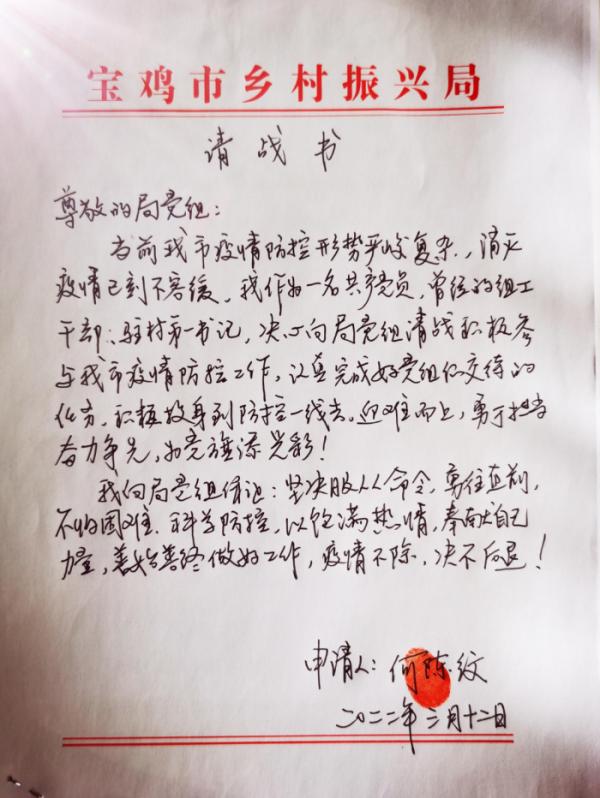 宝鸡市乡村振兴局
请战书
尊敬的局党组：
当前我市疫情防控形势严峻复杂，消灭
疫情已刻不容缓，我作为一名共产党员，曾经的组工
干部、驻村第一书记，决心向局党组请战积极参
与我市疫情防控工作，认真完成好党组织交待的
任务，积极投身到防控一线去，迎难而上，勇于担当
奋力争先，为党旗添光彩！
我向局党组保证：坚决服从命令，勇往直前，
不怕困难，科学防控，以饱满热情，奉献自己
力量，善始善终做好工作，疫情不除，决不后退！
申请人：何陈纹
二〇二二年三月十二日